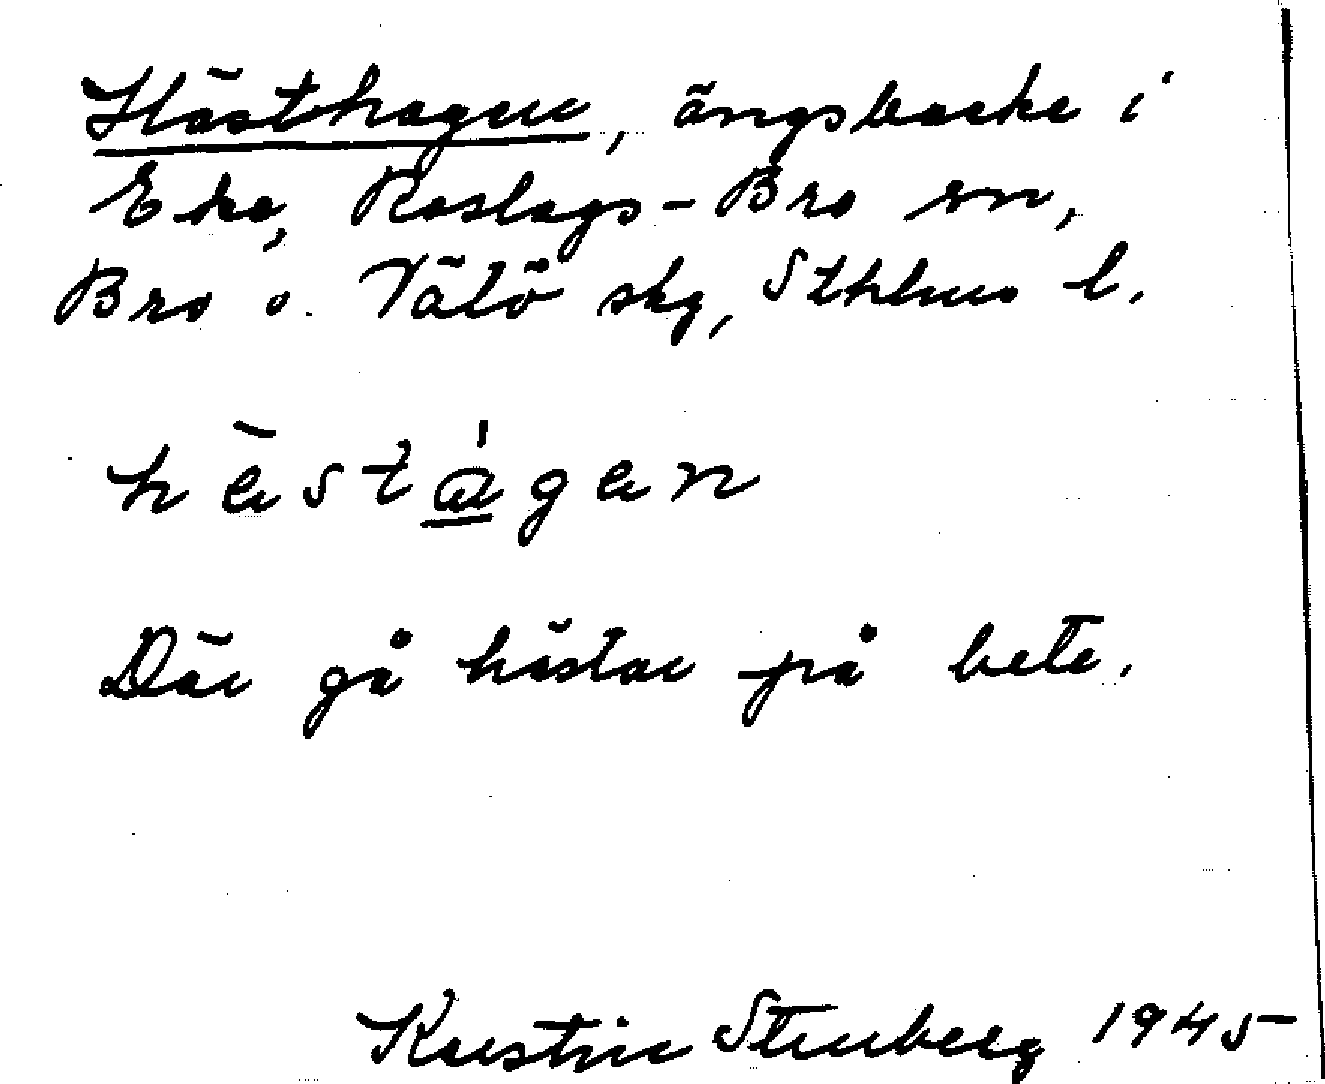 Hästhagen, ängsbacke i
Eka, Roslags-Bro sn,
Bro o. Vätö skg, Sthlms l.
hästagen
Där gå hästar på bete.
Kerstin Stenberg 1945